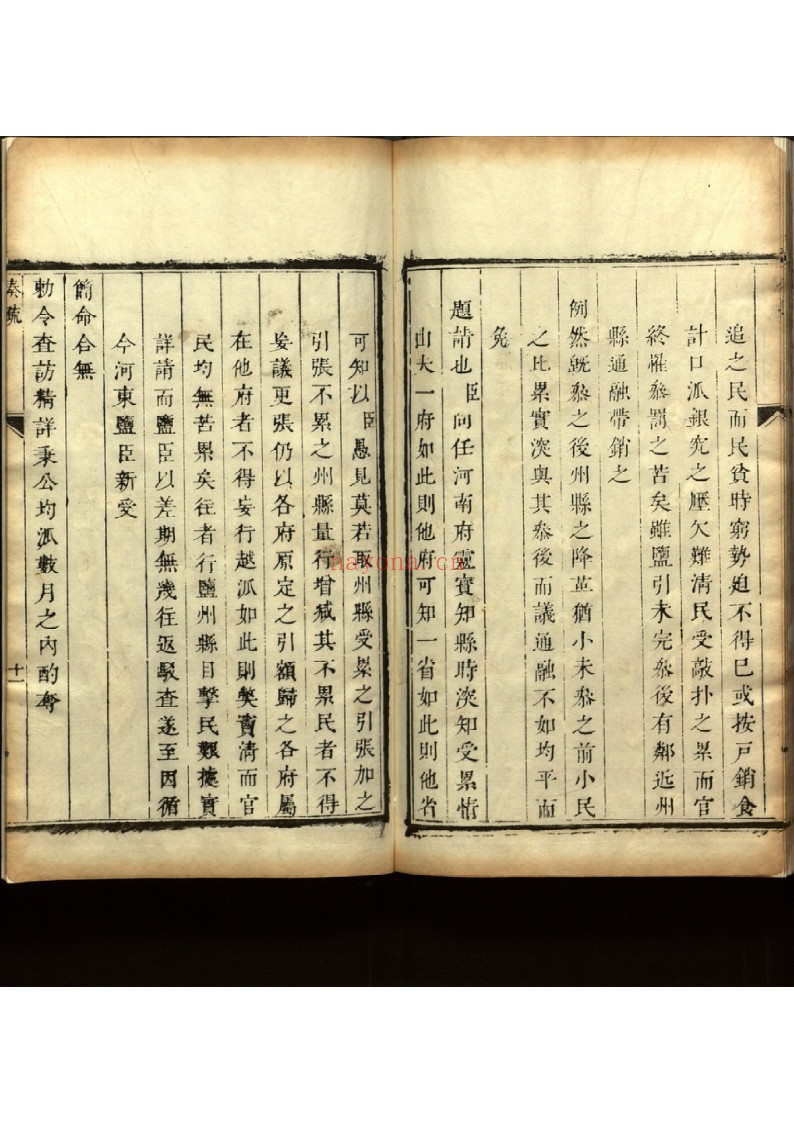 追之民而民貧時窮勢迫不得已或按戶銷食
計口派銀究之壓欠難清民受敲扑之累而官
終罹叅罰之苦矣雖鹽引未完叅後有鄰近州
縣通融帶銷之
例然既叅之後州縣之降革猶小未叅之前小民
之比累實深與其叅後而議通融不如均平而
免
題請也臣向任河南府靈寶知縣時深知受累情
由夫一府如此則他府可知一省如此則他省
可知以臣愚見莫若取州縣受累之引張加之
引張不累之州縣量行增減其不累民者不得
妄議更張仍以各府原定之引額歸之各府屬
在他府者不得妄行越派如此則獘竇清而官
民均無苦累矣往者行鹽州縣目擊民艱據實
詳請而鹽臣以差期無幾往返駁查遂至因循
今河東鹽臣新受
簡命合無
勅令查訪精詳秉公均派數月之內酌奪
奏疏
十一
nayona.cn